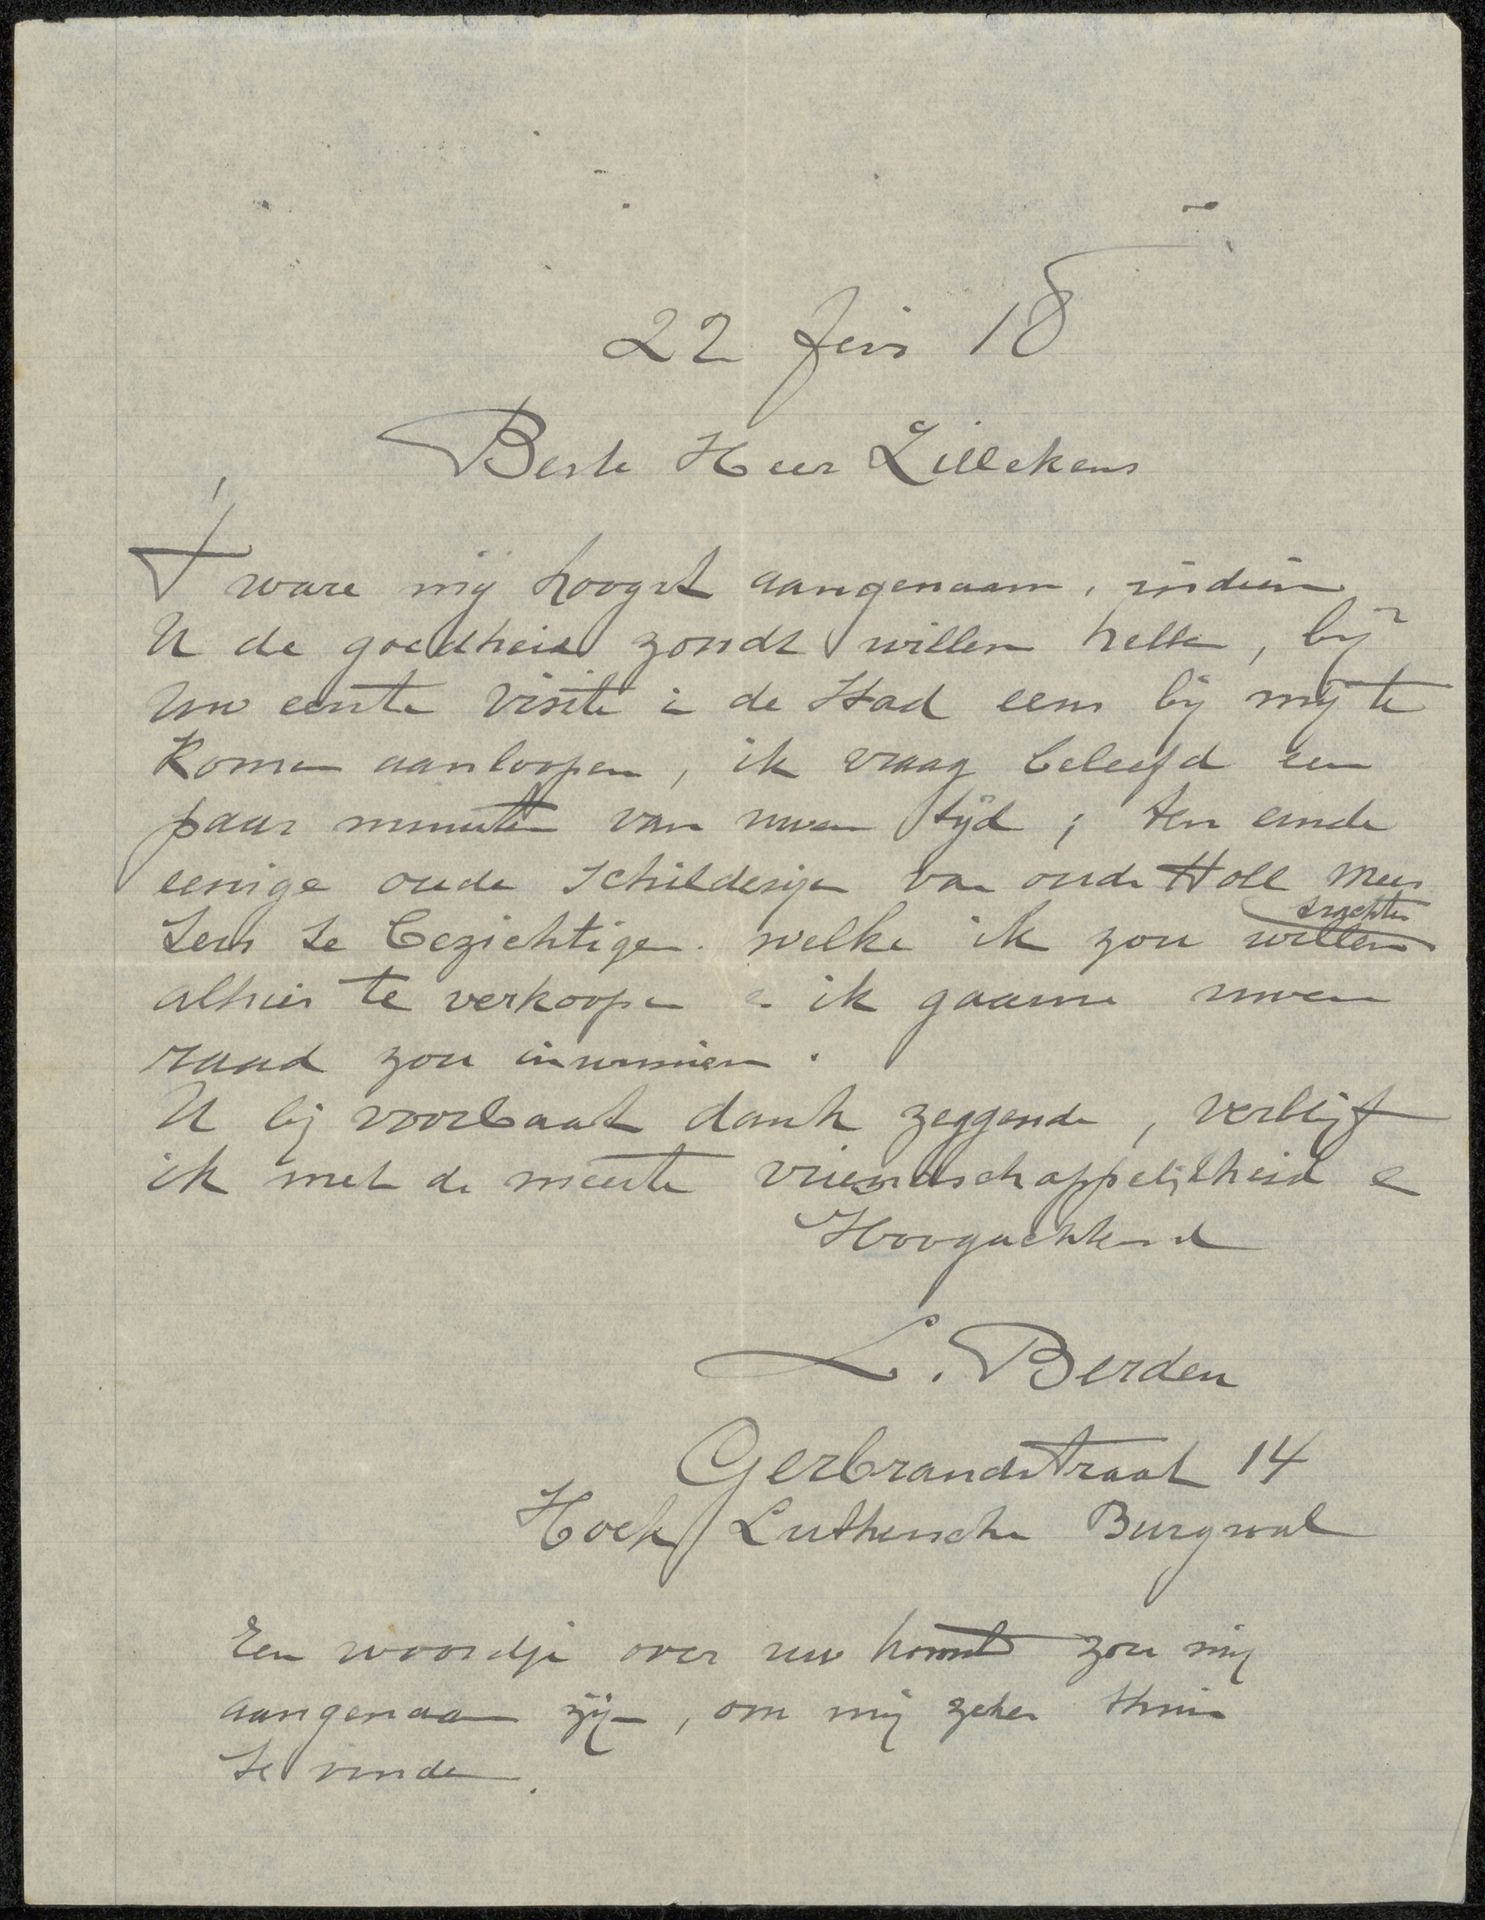 22 Juni 18
Beste Heer Zillekens
'T ware mij hoogst aangenaam, indien
U de goedheid zoudt willen hebben, bij
Uw eerste visite in de stad eens bij mij te
komen aanloopen, ik vraag beleefd een
paar minuten van uwen tijd; ten einde
eenige oude schilderijen van oude Holl Mees
ters te bezichtigen. welke ik zou willen trachten
alhier te verkoopen en ik gaarne uwen
raad zou inwinnen.
U bij voorbaat dank zeggende, verblijf
ik met de meeste vriendschappelijkheid en
Hoogachtend
L. Berden
Gerbrandstraat 14
Hoek Luthersche Burgwal
Een woordje over uw komst zou mij
aangenaam zijn, om mij zeker thuis
te vinden.